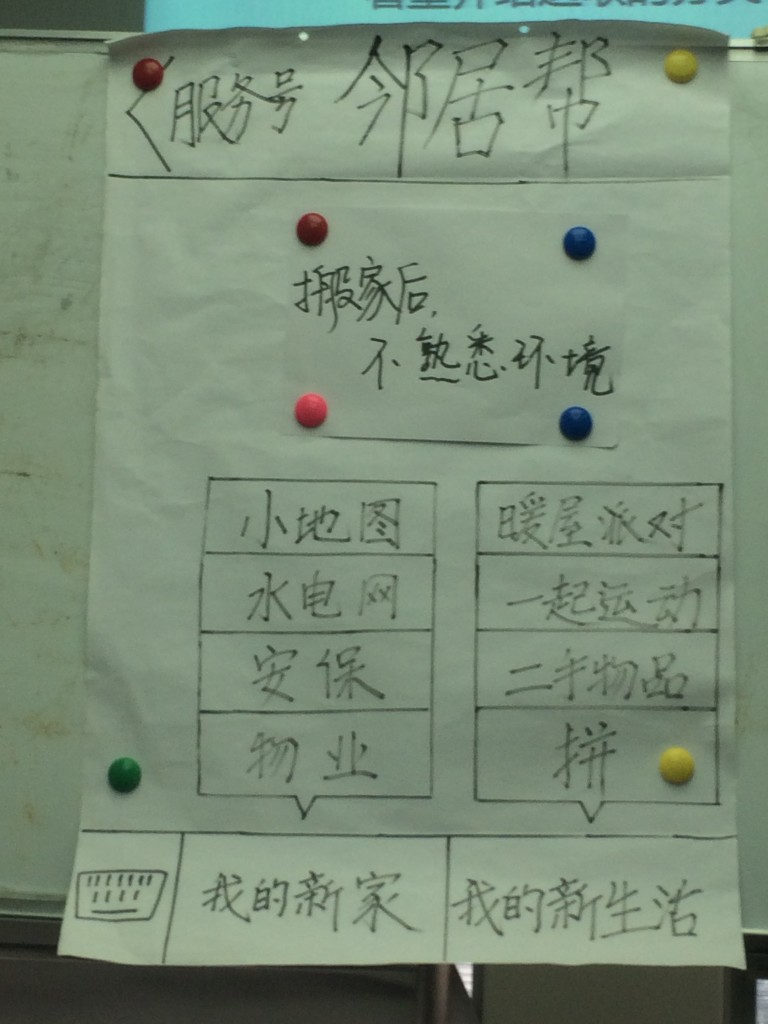 服务号 邻居帮
搬家后,
不熟悉环境
小地图
水电网
安保
物业
暖屋派对
一起运动
二手物品
拼
我的新家
我的新生活